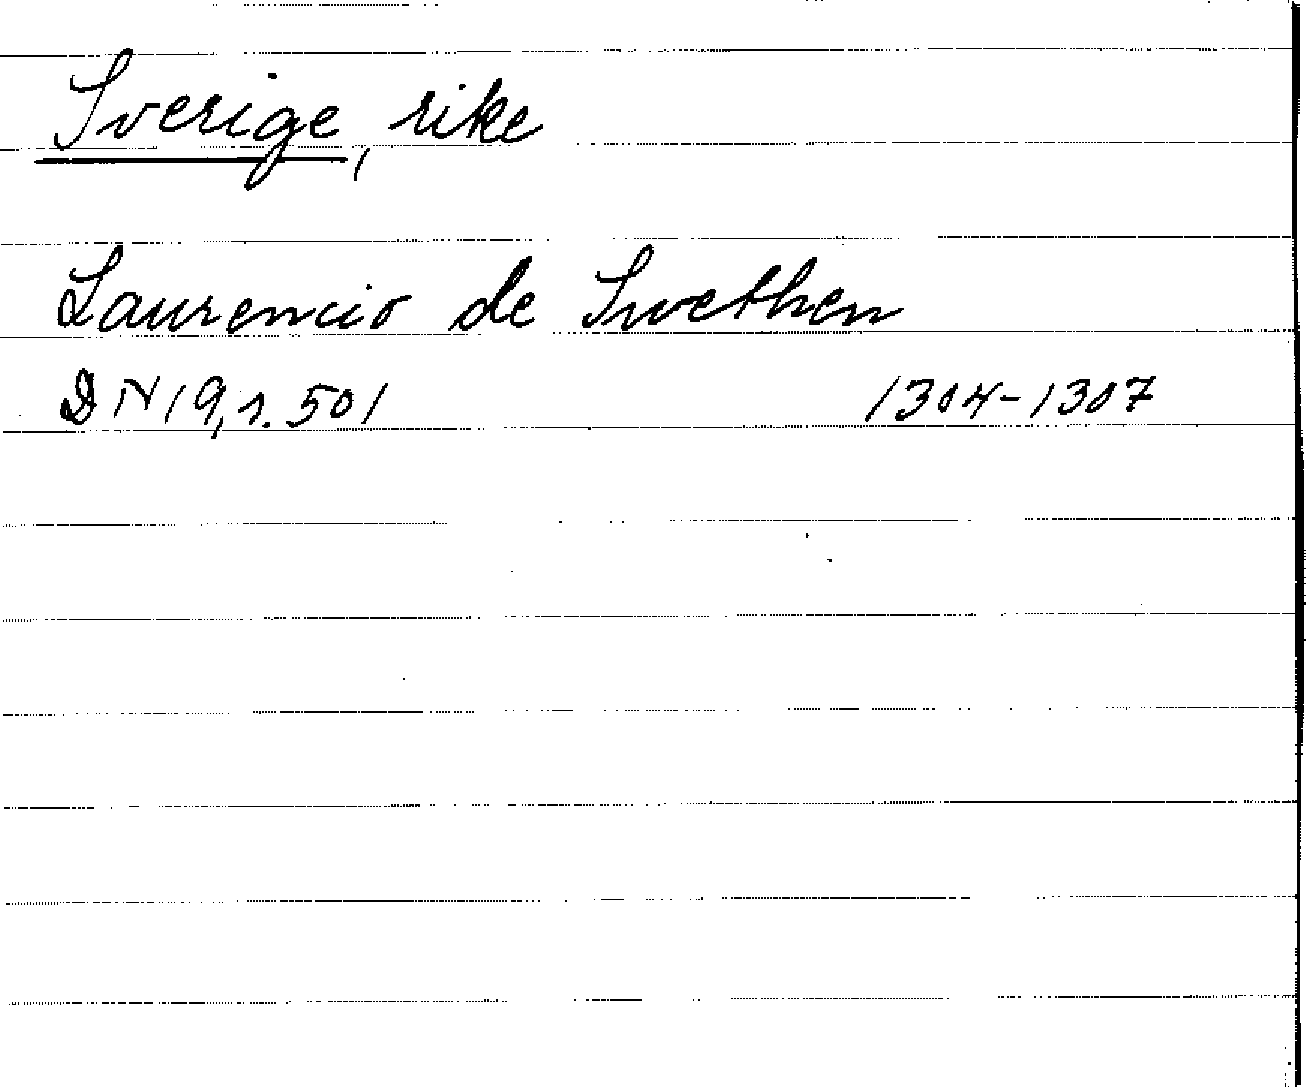 Sverige, rike
Laurencio de Swethen
DN 19, s. 501 1304-1307